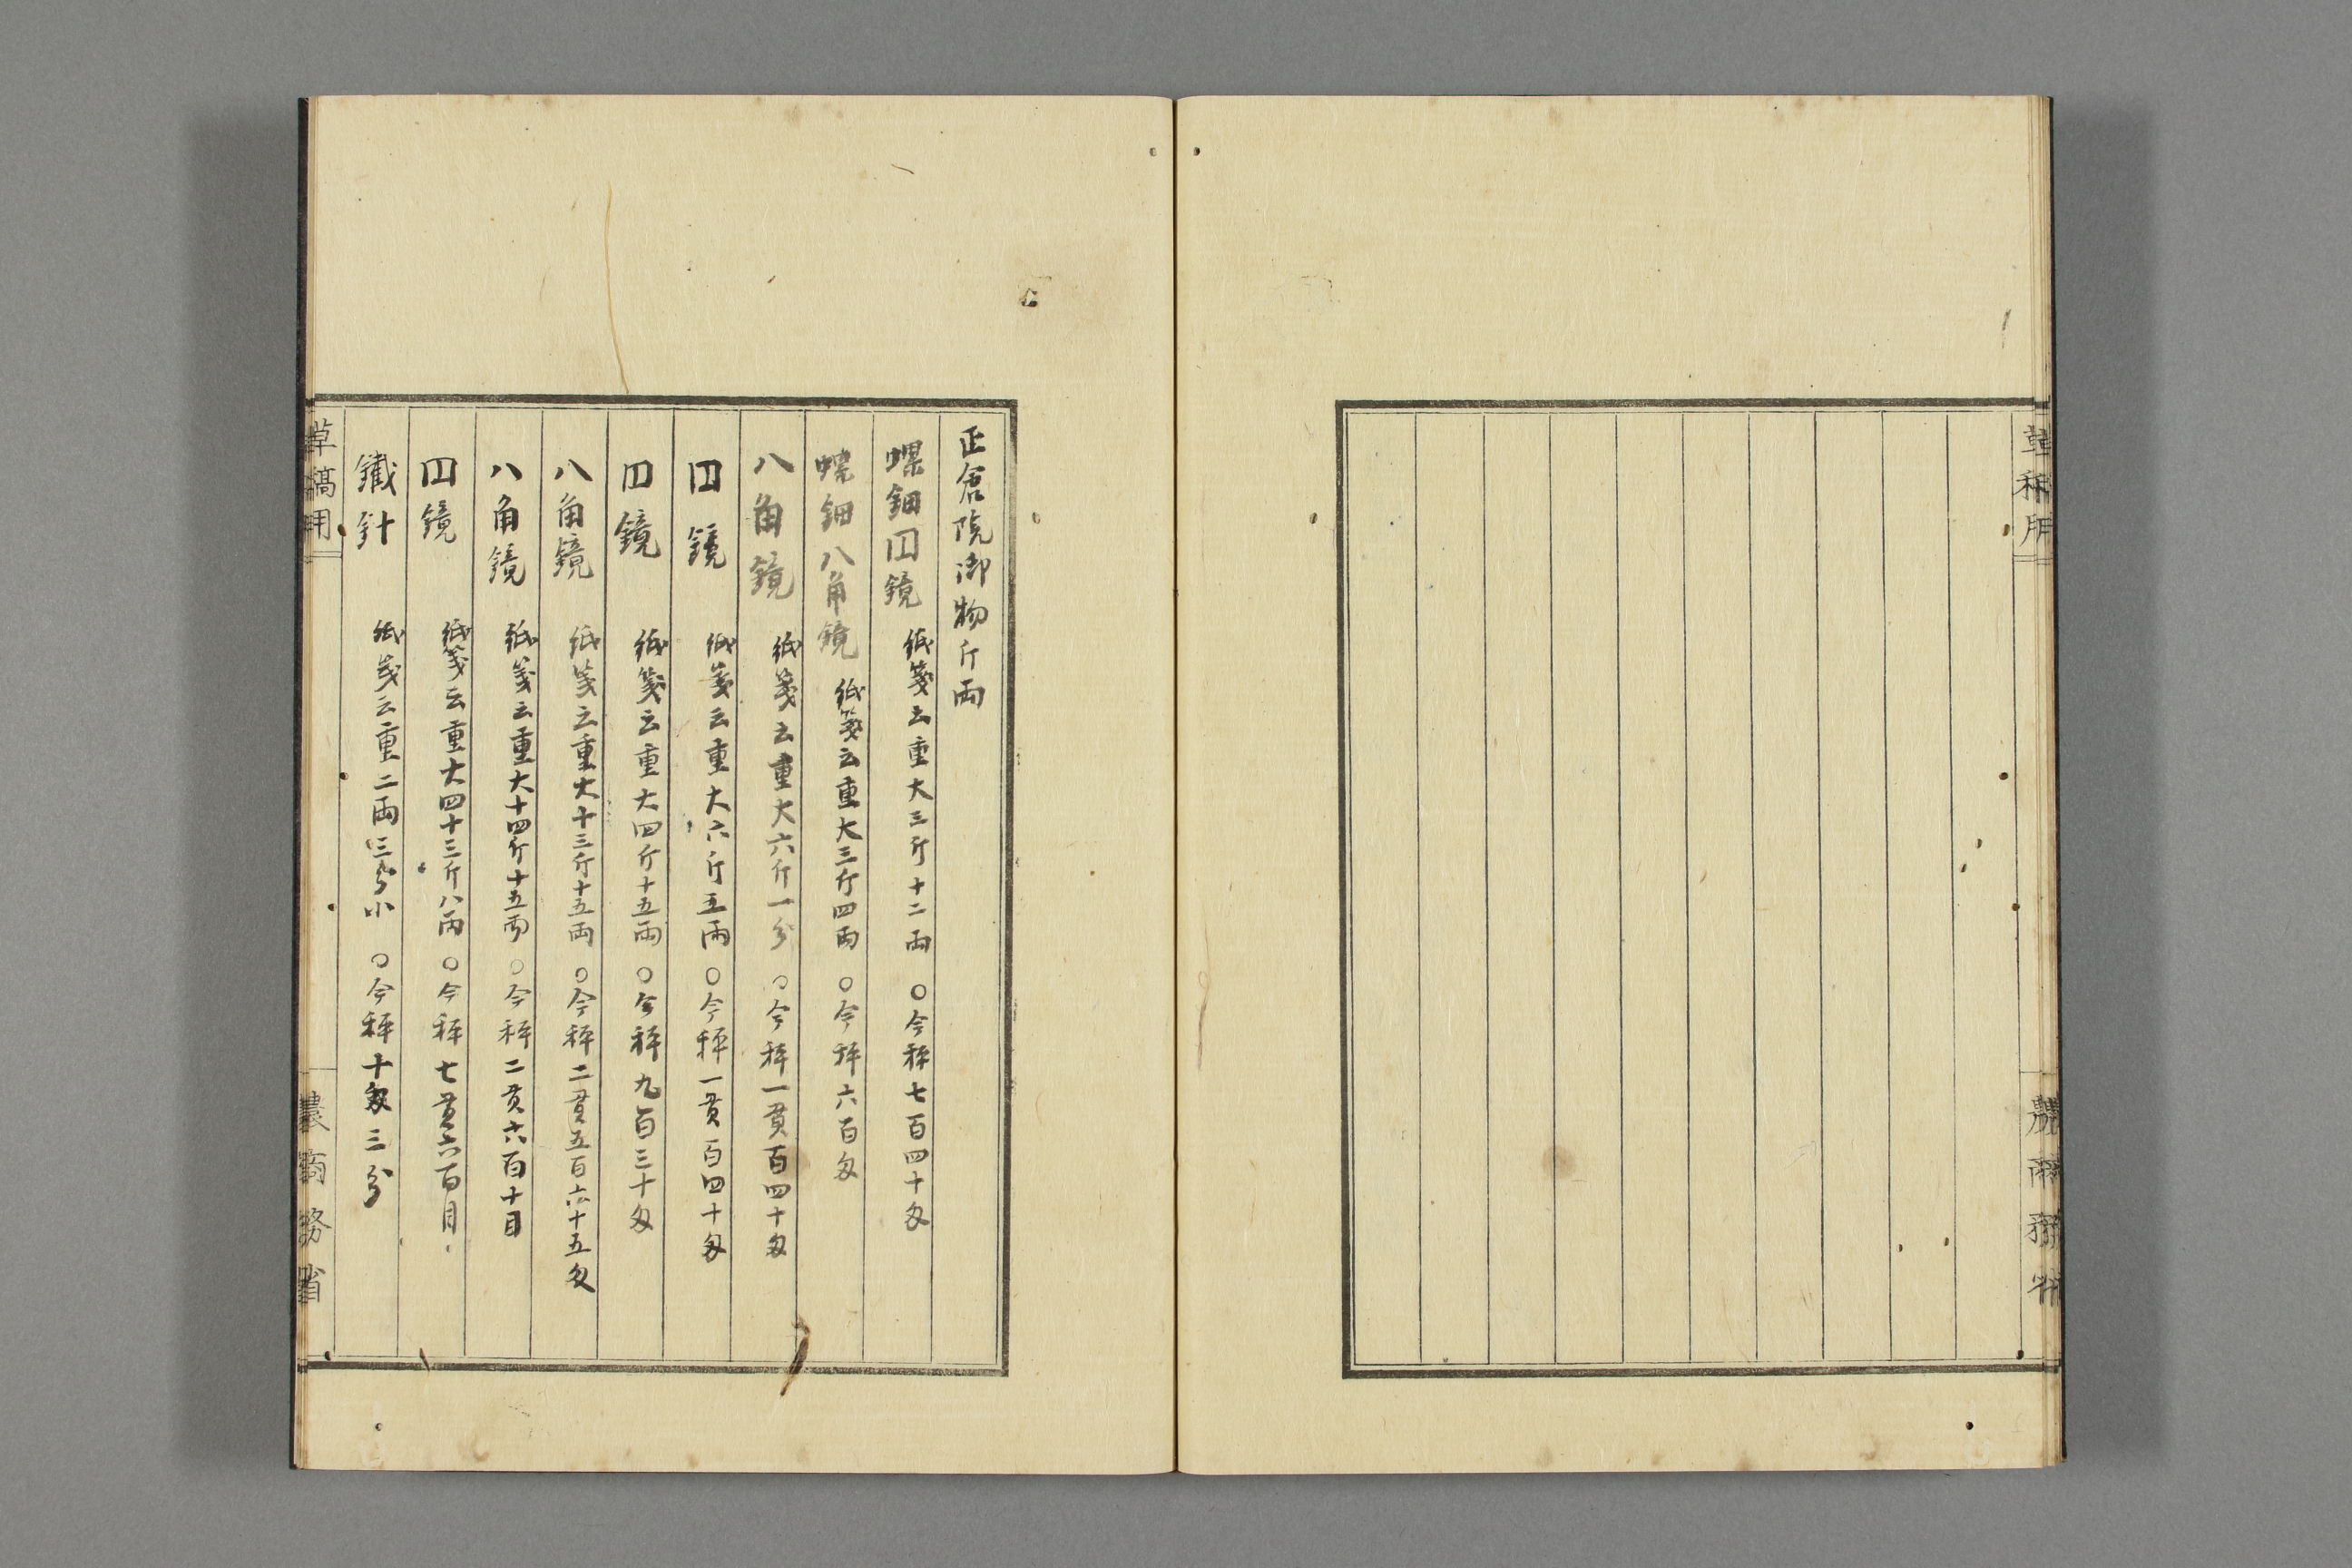 正倉院御物斤両
螺鈿円鏡 紙箋云重大三斤十二両 ○今秤七百四十匁
螺鈿八角鏡 紙箋云重大三斤四両 ○今秤六百匁
八角鏡 紙箋云重大六斤一分 ○今秤一貫百四十匁
円鏡 紙箋云重大六斤五両 ○今秤一貫百四十匁
円鏡 紙箋云重大四斤十五両 ○今秤九百三十匁
八角鏡 紙箋云重大十三斤十五両 ○今秤二貫五百六十五匁
八角鏡 紙箋云重大十四斤十五両 ○今秤二貫六百十目
円鏡 紙箋云重大四十三斤八両 ○今秤七貫六百目
鑯針 紙箋云重二両三分小 ○今秤十匁三分
草稿用
農商務省